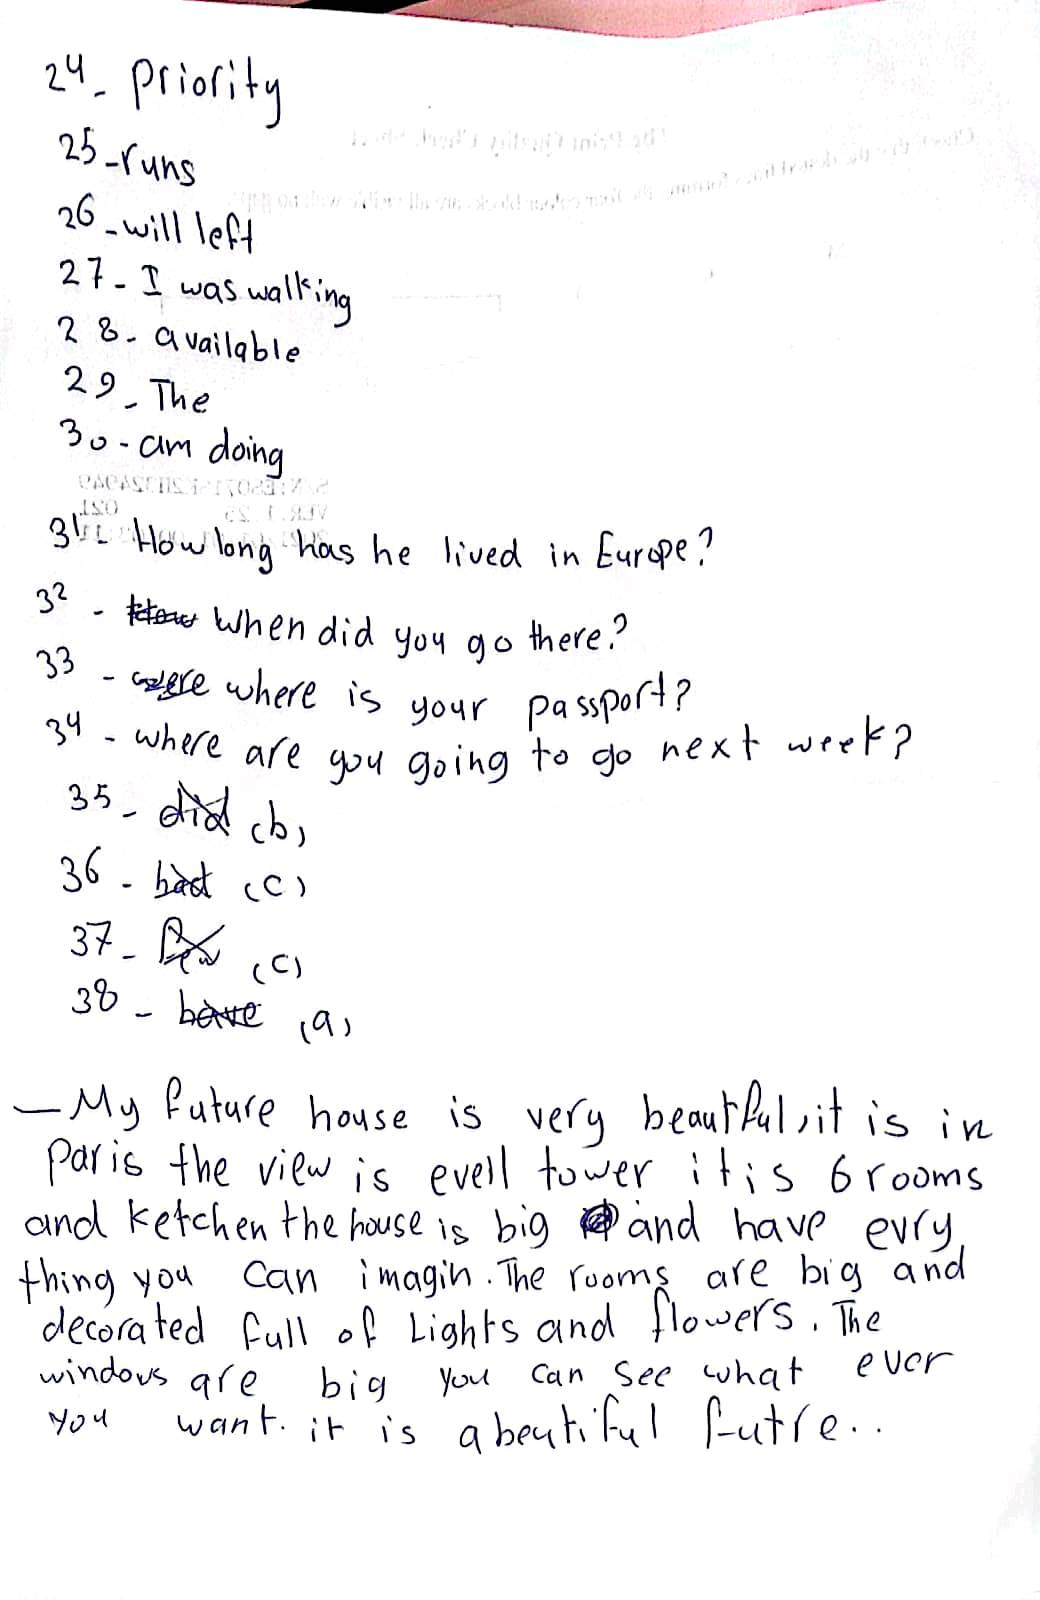 24- Priority
25-runs
26-will left
27- I was walking
28- available
29- The
30- am doing
31- How long has he lived in Europe?
32 - How When did you go there?
33 - were where is your passport?
34 - where are you going to go next week?
35- did (b)
36- had (c)
37- few (c)
38- have (a)
- My future house is very beautful, it is in
Paris the view is evell tower it is 6 rooms
and ketchen the house is big and have evry
thing you can imagin. The rooms are big and
decorated full of Lights and flowers. The
windows are big you can see what ever
you want. it is a beutiful futre..